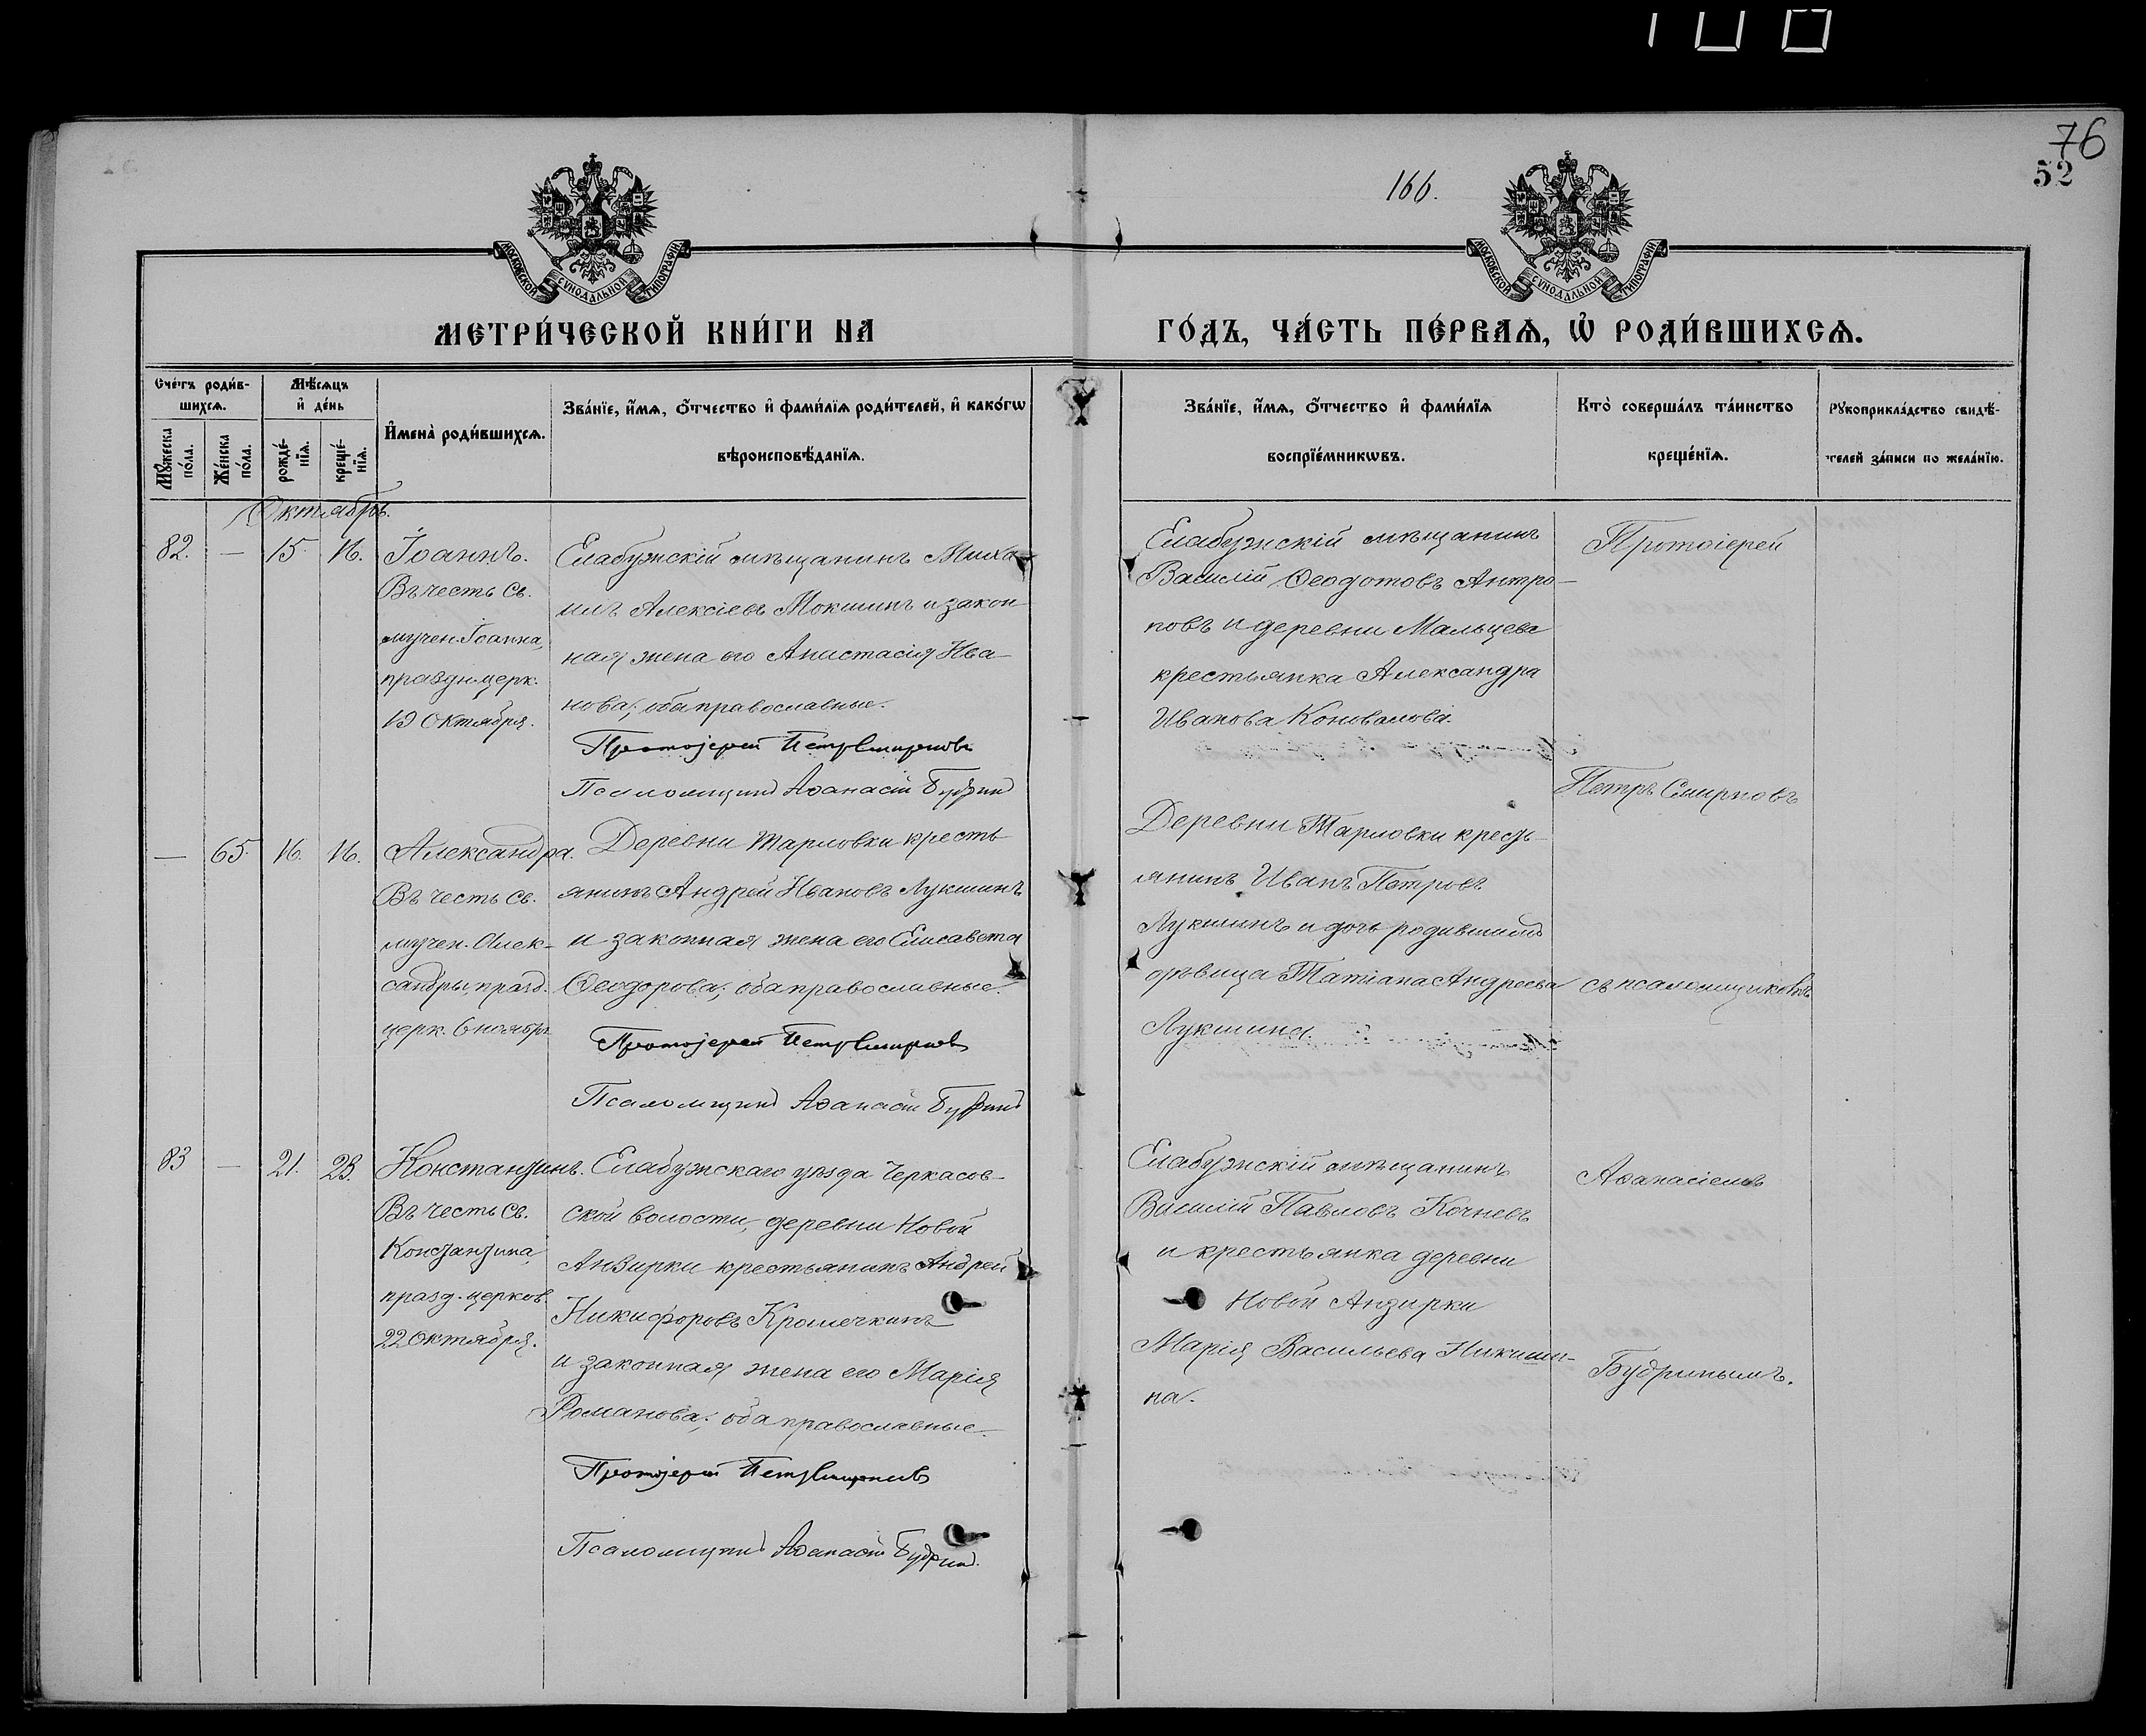 100
76
52
166.
МОСКОВСКОЙ СѴНОДАЛЬНОЙ ТИПОГРАФІИ
МОСКОВСКОЙ СѴНОДАЛЬНОЙ ТИПОГРАФІИ
МЕТРИ́ЧЕСКОЙ КНИ́ГИ НА
ГО́ДЪ, ЧА́СТЬ ПЕ́РВАѦ, Ѡ҆ РОДИ́ВШИХСѦ.
Сче́тъ роди́в-
шихсѧ.
Мꙋ́жеска
по́ла.
Же́нска
по́ла.
Мѣ́сѧцъ
и҆ де́нь
рожде́-
нїѧ.
креще́-
нїѧ.
И҆мена̀ роди́вшихсѧ.
Зва́нїе, и҆́мѧ, ѻ҆́тчество и҆ фами́лїѧ роди́телей, и҆ како́гѡ
вѣроисповѣ́данїѧ.
Зва́нїе, и҆́мѧ, ѻ҆́тчество и҆ фами́лїѧ
воспрїе́мникѡвъ.
Кто̀ соверша́лъ та́инство
креще́нїѧ.
Рꙋкоприкла́дство свидѣ́-
телей за́писи по жела́нїю.
Октябрь.
82. — 15. 16. Іоаннъ.
Въ честь св.
мучен. Іоанна,
праздн. церк.
19 Октября.
Елабужскій мѣщанинъ Миха-
илъ Алексіевъ Мокшинъ и закон
ная жена его Анастасія Ива-
нова; оба православные.
Протоіерей Петръ Смирновъ
Псаломщикъ Аѳанасій Будринъ
Елабужскій мѣщанинъ
Василій Ѳеодотовъ Антро-
повъ и деревни Мальцева
крестьянка Александра
Иванова Коновалова.
Протоіерей
Петръ Смирновъ
— 65. 16. 16. Александра.
Въ честь св.
мучен. Алек-
сандры, празд.
церк. 6 ноябр.
Деревни Тарловки кресть
янинъ Андрей Ивановъ Лукшинъ
и законная жена его Елисавета
Ѳеодорова; оба православные.
Протоіерей Петръ Смирновъ
Псаломщикъ Аѳанасій Будринъ
Деревни Тарловки кресть-
янинъ Иванъ Петровъ
Лукшинъ и дочь родившаго
дѣвица Татіана Андреева
Лукшина.
съ псаломщикомъ
83 — 21. 23. Константинъ.
Въ честь св.
Константина,
празд. церков.
22 Октября.
Елабужскаго уѣзда Черкасов-
ской волости, деревни Новой
Анзирки крестьянинъ Андрей
Никифоровъ Кромочкинъ
и законная жена его Марія
Романова; оба православные.
Протоіерей Петръ Смирновъ
Псаломщикъ Аѳанасій Будринъ.
Елабужскій мѣщанинъ
Василій Павловъ Кочневъ
и крестьянка деревни
Новой Анзирки
Марія Васильева Никиши-
на.
Аѳанасіемъ
Будринымъ.